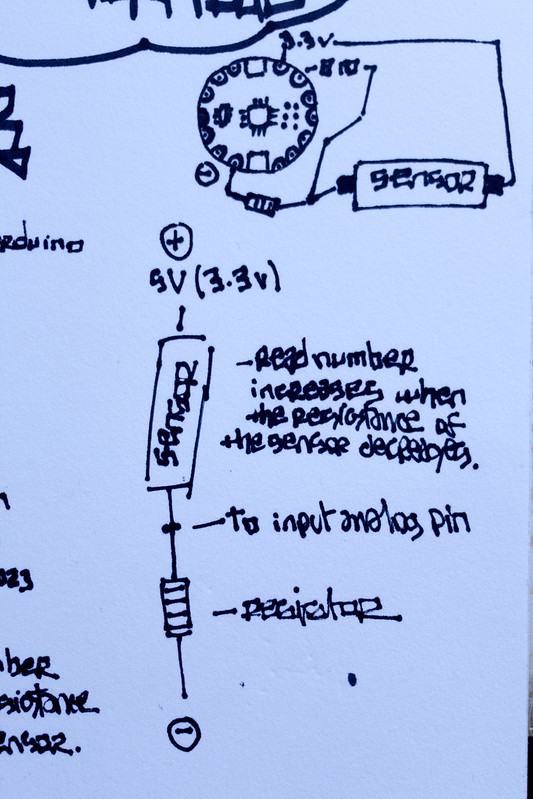 3.3v
#10
SENSOR
-
rduino
+
5V (3.3v)
SENSOR
- Read number
increases when
the resistance of
the sensor decreases.
- To input analog pin
023
- resistor
ber
sistance
ensor.
-